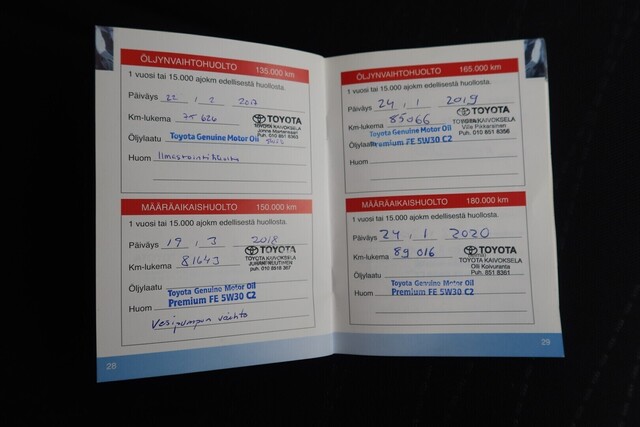 ÖLJYNVAIHTOHUOLTO 135.000 km
1 vuosi tai 15.000 ajokm edellisestä huollosta.
Päiväys 22 , 2 2017
TOYOTA
Km-lukema 75 626
TOYOTA KAIVOKSELA
Öljylaatu Toyota Genuine Motor Oil
Huom Ilmastointihuolto
MÄÄRÄAIKAISHUOLTO 150.000 km
1 vuosi tai 15.000 ajokm edellisestä huollosta.
Päiväys 19 , 3 2018
TOYOTA
Km-lukema 81643
TOYOTA KAIVOKSELA
Öljylaatu
Toyota Genuine Motor Oil
Huom Premium FE 5W30 C2
Vesipumpun vaihto
28
ÖLJYNVAIHTOHUOLTO 165.000 km
1 vuosi tai 15.000 ajokm edellisestä huollosta.
Päiväys 24 , 1 2019
TOYOTA
Km-lukema 85066
KAIVOKSELA
Toyota Genuine Motor Oil
Puh. 010 851 8356
Öljylaatu Premium FE 5W30 C2
Huom
MÄÄRÄAIKAISHUOLTO 180.000 km
1 vuosi tai 15.000 ajokm edellisestä huollosta.
Päiväys 24 , 1 2020
TOYOTA
Km-lukema 89 016
TOYOTA KAIVOKSELA
Olli Koivuranta
Öljylaatu
Puh. 851 8361
Toyota Genuine Motor Oil
Huom Premium FE 5W30 C2
29